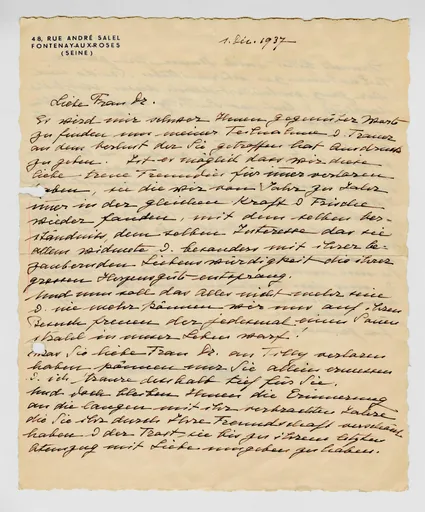 48, RUE ANDRÉ SALEL
FONTENAY-AUX-ROSES
(SEINE)
1. Dez. 1937
Liebe Frau Dr.
Es wird mir schwer Ihnen gegenüber Worte
zu finden um meiner Teilnahme & Trauer
an dem Verlust der Sie getroffen hat Ausdruck
zu geben. Ist es möglich dass wir diese
liebe treue Freundin für immer verloren
haben, sie die wir von Jahr zu Jahr
immer in der gleichen Kraft & Frische
wieder fanden, mit dem selben Ver-
ständnis, dem selben Interesse das sie
allem widmete & besonders mit ihrer be-
zaubernden Liebenswürdigkeit die ihrer
grossen Herzensgüte entsprang.
Und nun soll das alles nicht mehr sein
& nie mehr können wir uns auf Ihren
Besuch freuen der jedesmal einen Sonnen
strahl in unser Leben warf.
Was Sie liebe Frau Dr. an Tilly verloren
haben können nur Sie allein ermessen
& ich traure deshalb tief für Sie.
Und doch bleiben Ihnen die Erinnerung
an die langen mit ihr verbrachten Jahre
die Sie ihr durch Ihre Freundschaft verschönt
haben & der Trost sie bis zu ihrem letzten
Atemzug mit Liebe umgeben zu haben.